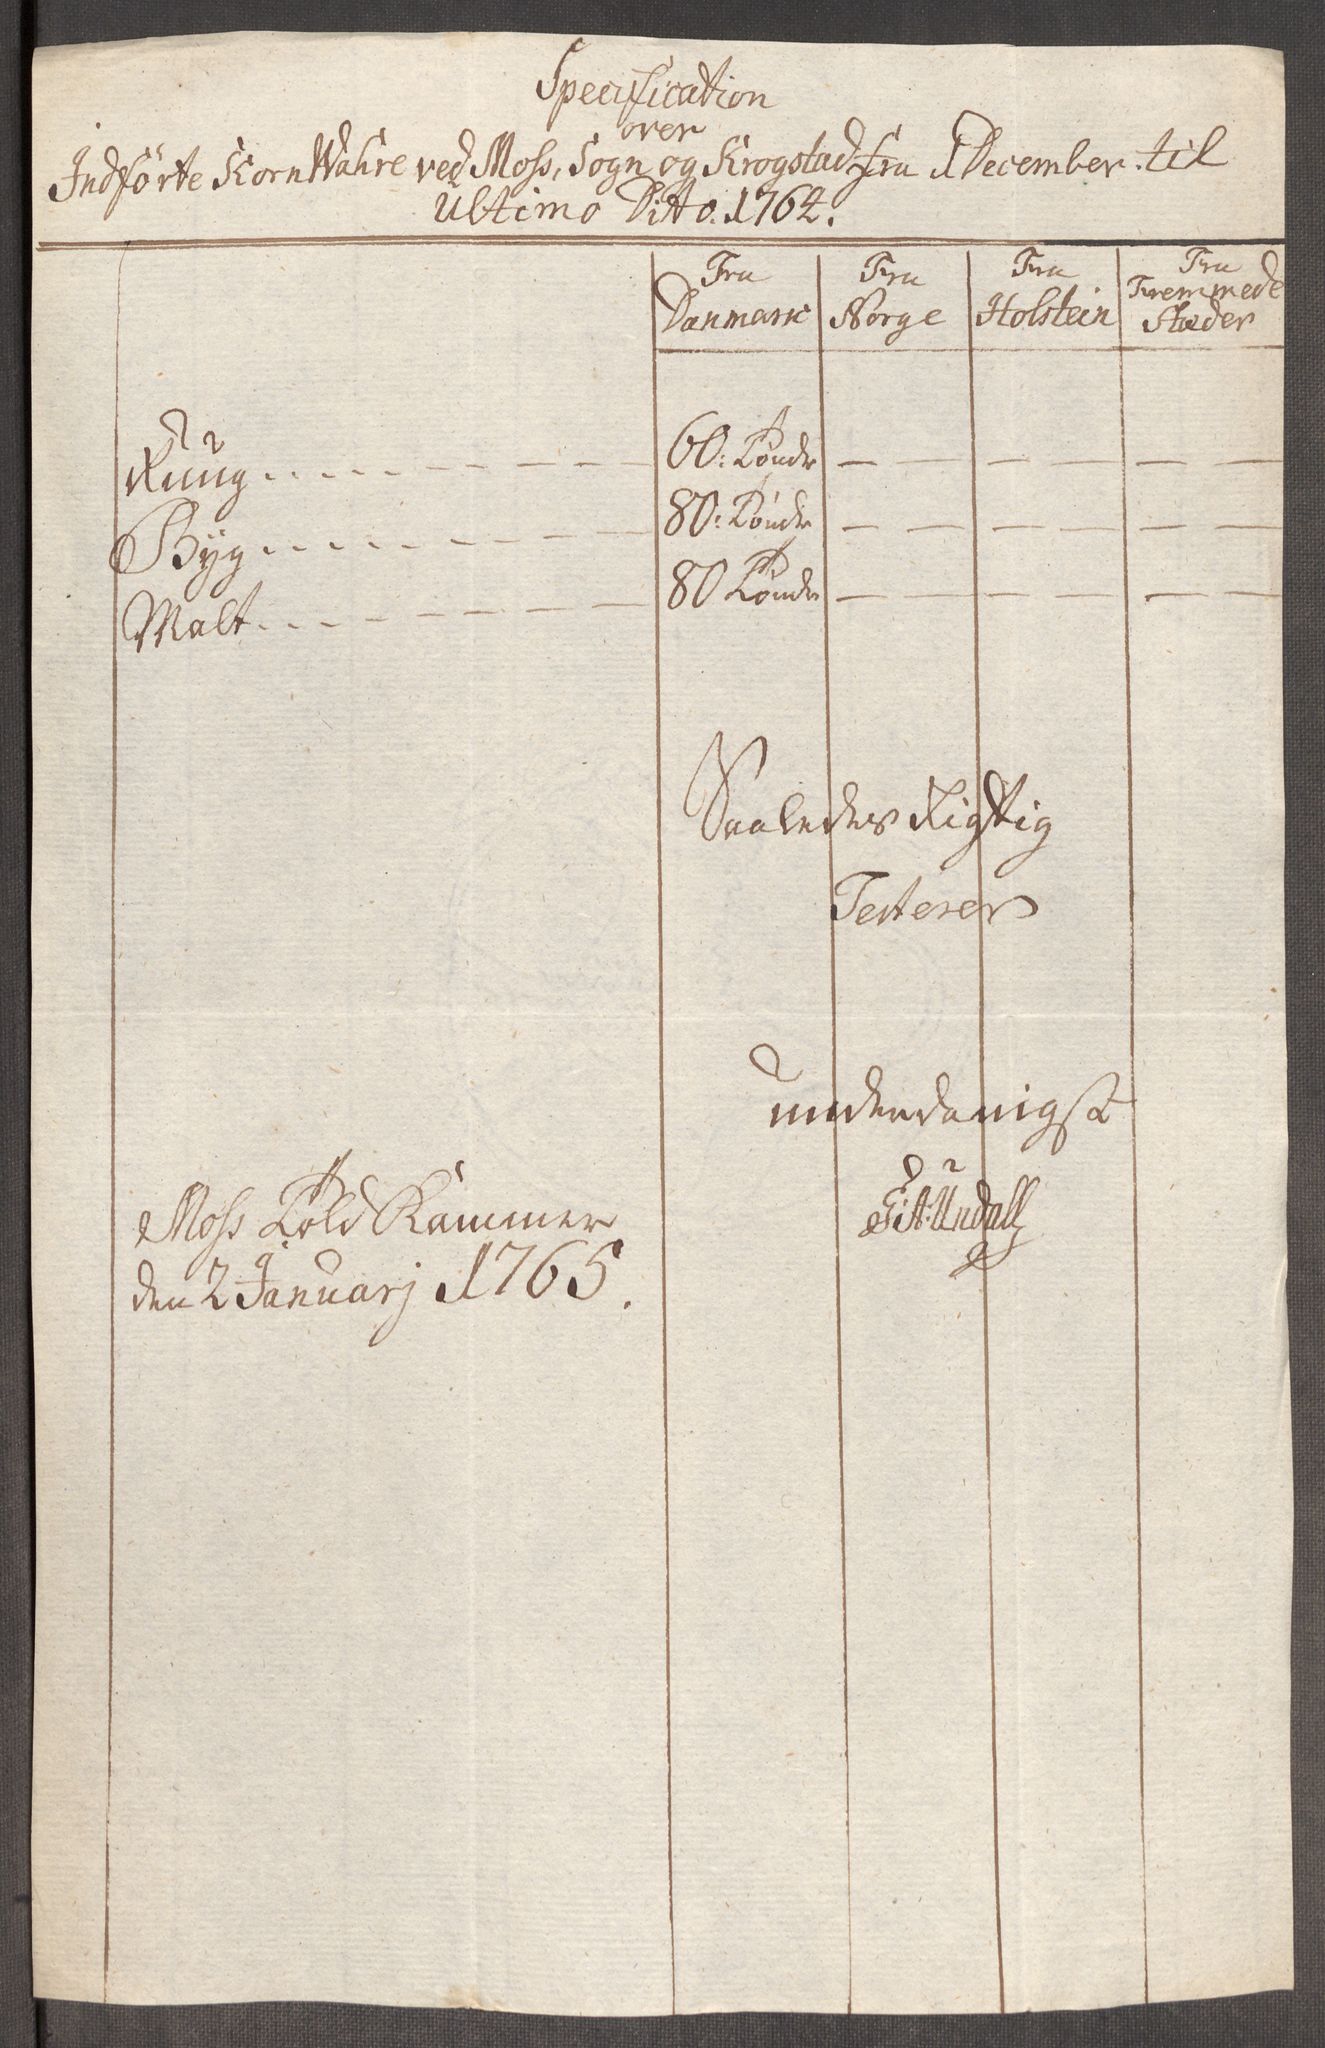 Specification
over
Indførte Korn Wahre ved Moss, Sogn og Krogstad fra 1 December til
Ultimo Ditto. 1764.
Fra Danmark
Fra Norge
Fra Holstein
Fra Fremmede Stæder
Rüug 60: Tønder — — — — — —
Byg 80: Tønder — — — — — —
Malt 80 Tønder — — — — — —
Saaledes Rigtig
Testerer
underdanigst
Moss Told Kammer
den 2 Januarj 1765.